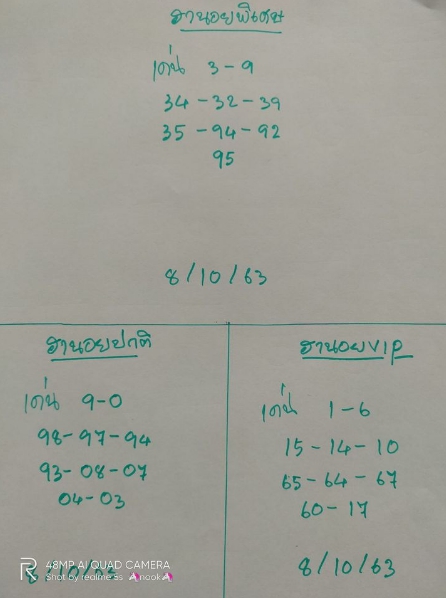 ฮานอยพิเศษ
เด่น 3-9
34-32-39
35-94-92
95
8/10/63
ฮานอยปกติ
เด่น 9-0
98-97-94
93-08-07
04-03
8/10/63
ฮานอยVIP
เด่น 1-6
15-14-10
65-64-67
60-17
8/10/63
48MP AI QUAD CAMERA
Shot by realme 5s Anooka